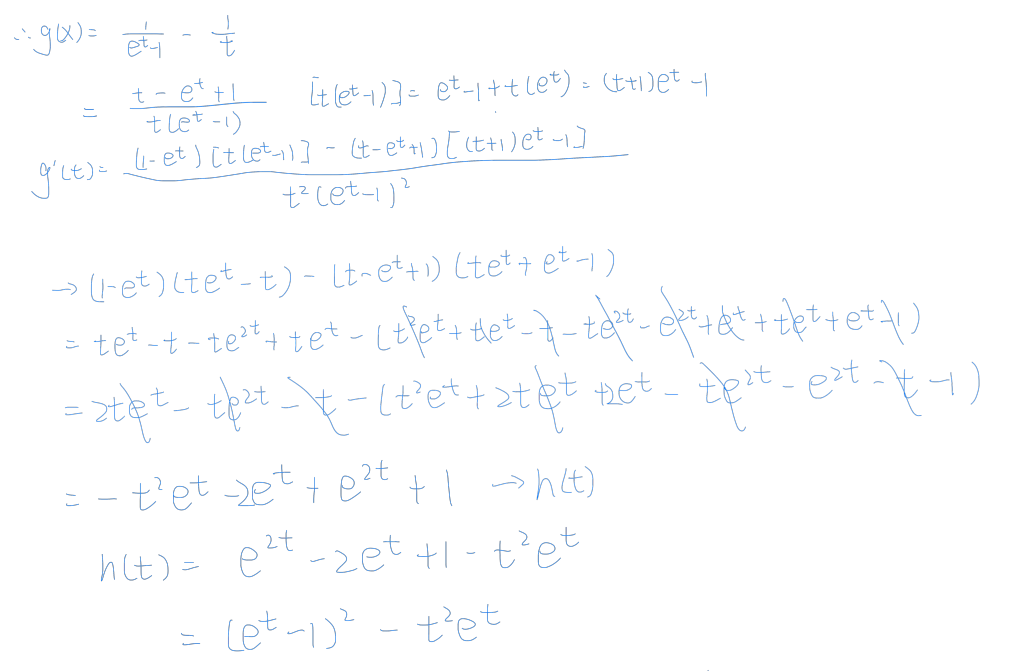 ∴ g(x) = 1/(e^t-1) - 1/t
= (t - e^t + 1)/(t(e^t - 1))   [t(e^t-1)] = e^t-1+t(e^t) = (t+1)e^t - 1
g'(t) = ((1-e^t)[t(e^t-1)] - (t-e^t+1)[(t+1)e^t-1])/(t²(e^t-1)²)
→ (1-e^t)(te^t - t) - (t-e^t+1)(te^t + e^t - 1)
= te^t - t - te^2t + te^t - (t²e^t + te^t - t - te^2t - e^2t + e^t + te^t + e^t - 1)
= 2te^t - te^2t - t - (t²e^t + 2te^t + 2e^t - te^2t - e^2t - t - 1)
= - t²e^t - 2e^t + e^2t + 1 → h(t)
h(t) = e^2t - 2e^t + 1 - t²e^t
= (e^t - 1)² - t²e^t